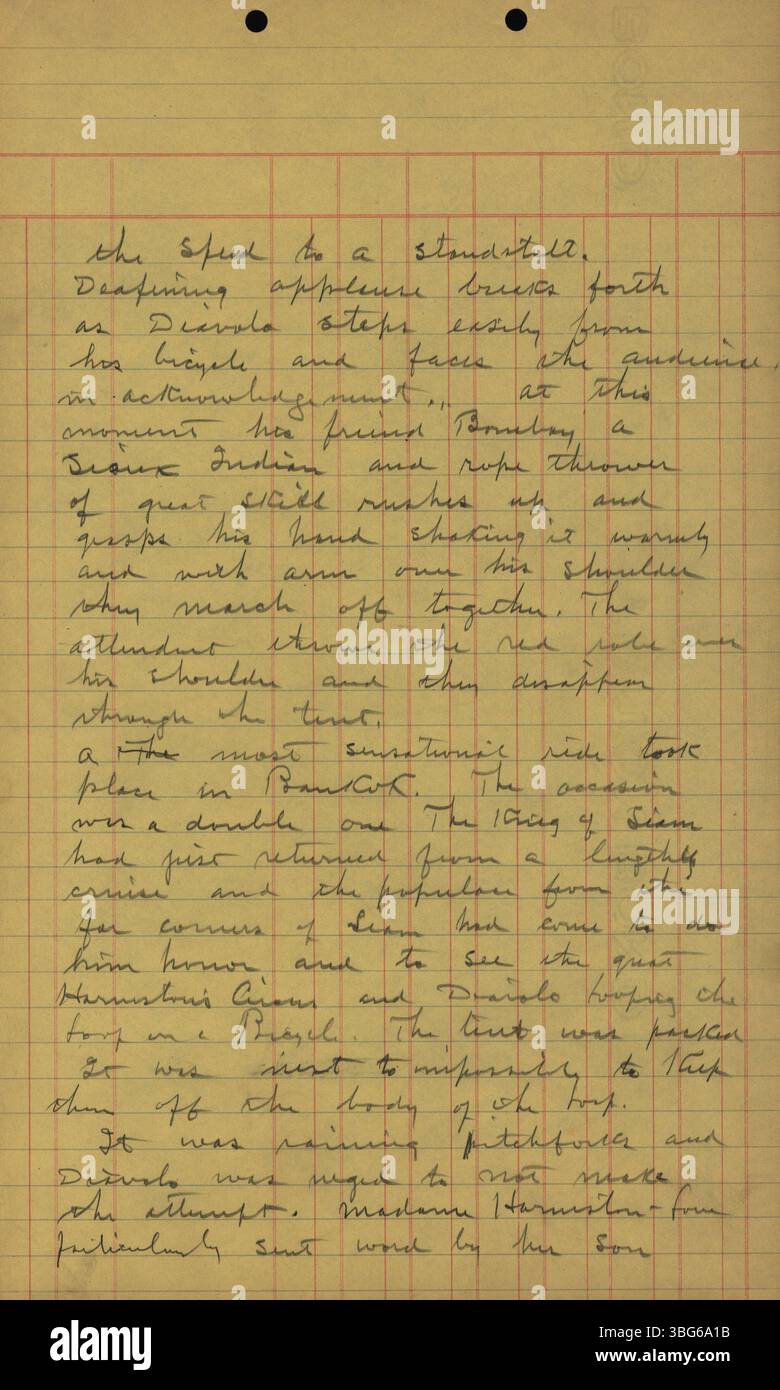 the speed to a standstill.
Deafining applause breaks forth
as Diavolo steps easily from
his bicycle and faces the audience.
in acknowledgement... at this
moment his friend Bombay a
Sioux Indian and rope thrower
of great skill rushes up and
grasps his hand shaking it warmly
and with arm over his shoulder
they march off together. The
attendant throws the red robe over
his shoulder and they disappear
through the tent.
a The most sensational ride took
place in BankoK. The occasion
was a double one The King of Siam
had just returned from a lengthy
cruise and the populace from the
far corners of Siam had come to do
him honor and to see the great
Harmston's Circus and Diavolo Looping the
Loop on a Bicycle. The tent was packed
It was next to impossible to Keep
them off the body of the loop.
It was raining pitchforks and
Diavolo was urged to not make
the attempt. Madame Harmston-
particularly sent word by her son
a
alamy
Image ID: 3BG6A1B
www.alamy.com